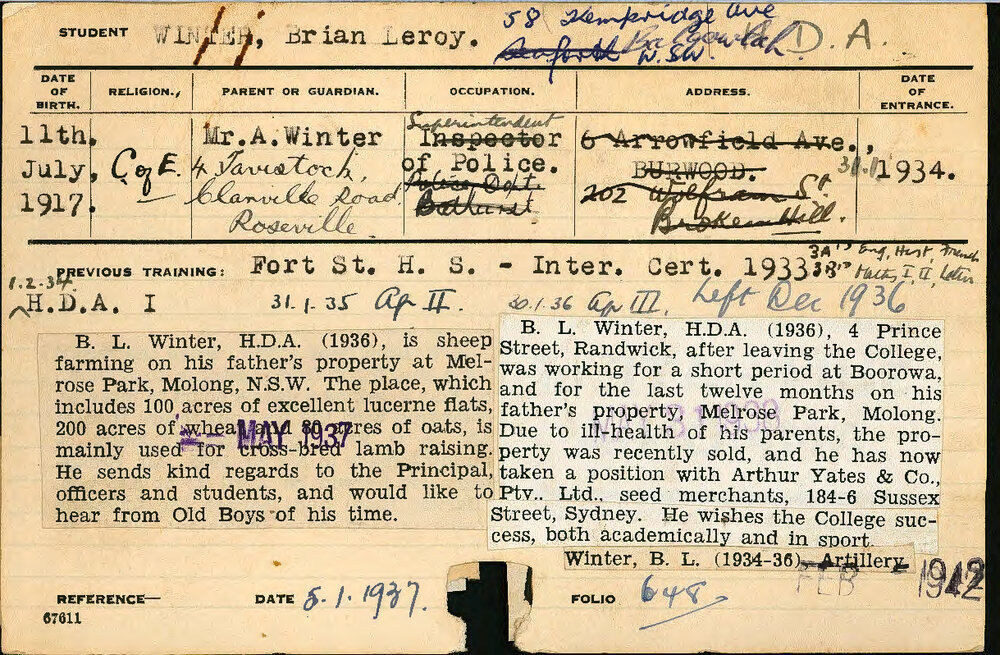 STUDENT WINTER, Brian Leroy. H.D.A.
58 Kempridge Ave
Seaforth Balgowlah
N.S.W.
DATE OF BIRTH. RELIGION., PARENT OR GUARDIAN. OCCUPATION. ADDRESS. DATE OF ENTRANCE.
Superintendent
11th. Mr.A.Winter Inspector 6 Arrowfield Ave.,
July, C of E. 4 Tavistock, of Police. BURWOOD. 31.1. 1934.
1917. Clanville Road Police Dept. 202 Wolfram St.
Roseville. Bathurst Broken Hill.
PREVIOUS TRAINING: Fort St. H. S. - Inter. Cert. 1933 3A's Eng, Hist, French
3B's Maths, I, II, Latin
1.2.34
H.D.A. I 31.1.35 Ap II. 30.1.36 Ap III. Left Dec 1936
B. L. Winter, H.D.A. (1936), is sheep
farming on his father's property at Mel-
rose Park, Molong, N.S.W. The place, which
includes 100 acres of excellent lucerne flats,
200 acres of wheat and 80 acres of oats, is
mainly used for cross-bred lamb raising.
He sends kind regards to the Principal,
officers and students, and would like to
hear from Old Boys of his time.
- MAY 1937
B. L. Winter, H.D.A. (1936), 4 Prince
Street, Randwick, after leaving the College,
was working for a short period at Boorowa,
and for the last twelve months on his
father's property, Melrose Park, Molong.
Due to ill health of his parents, the pro-
perty was recently sold, and he has now
taken a position with Arthur Yates & Co.,
Pty.. Ltd.. seed merchants, 184-6 Sussex
Street, Sydney. He wishes the College suc-
cess, both academically and in sport.
MAY 31 1938
Winter, B. L. (1934-36), Artillery.
FEB - 1942
REFERENCE— DATE 5.1.1937. FOLIO 648
67611